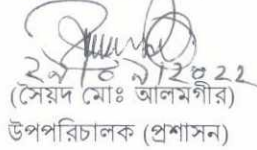 ২৯।০৯।২০২২
(সৈয়দ মোঃ আলমগীর)
উপপরিচালক (প্রশাসন)